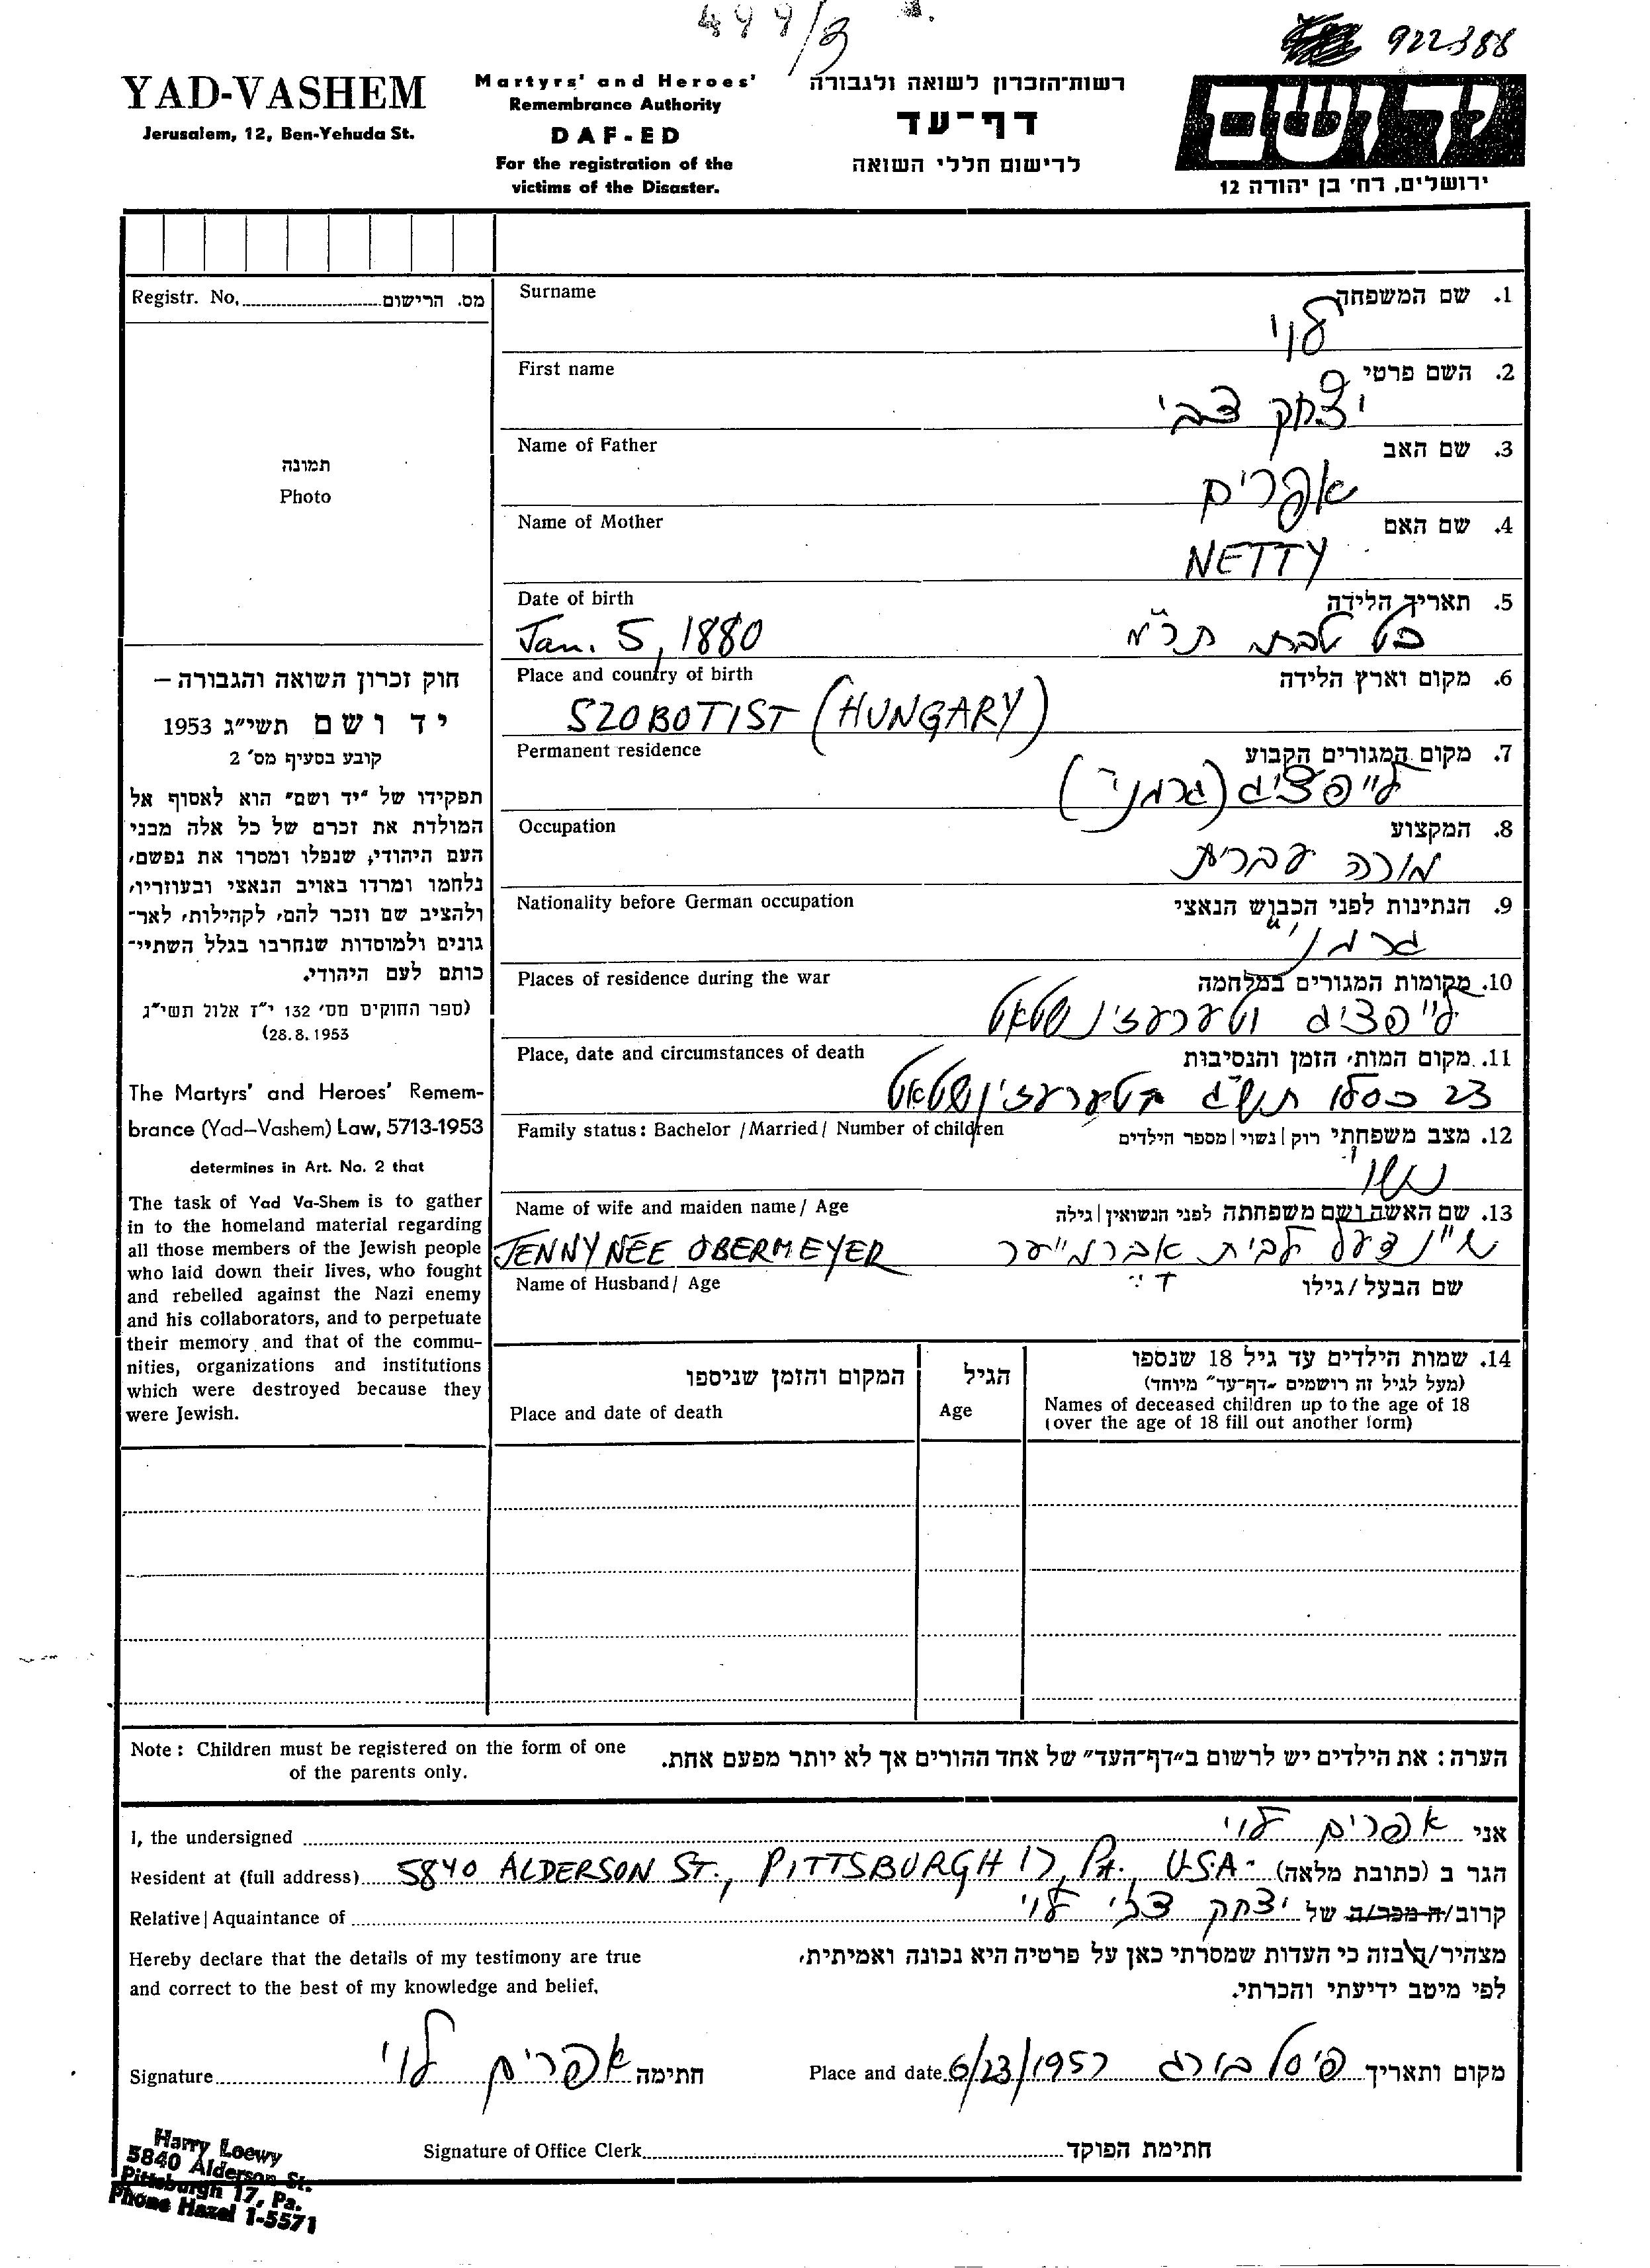 499/3
922388
YAD-VASHEM
Jerusalem, 12, Ben-Yehuda St.
Martyrs' and Heroes'
Remembrance Authority
DAF-ED
For the registration of the
victims of the Disaster.
רשות־הזכרון לשואה ולגבורה
דף־עד
לרישום חללי השואה
יד ושם
ירושלים, רח' בן יהודה 12
Registr. No. מס. הרישום
תמונה
Photo
חוק זכרון השואה והגבורה –
יד ושם תשי"ג 1953
קובע בסעיף מס' 2
תפקידו של "יד ושם" הוא לאסוף אל
המולדת את זכרם של כל אלה מבני
העם היהודי, שנפלו ומסרו את נפשם,
נלחמו ומרדו באויב הנאצי ובעוזריו,
ולהציב שם וזכר להם, לקהילות, לאר־
גונים ולמוסדות שנחרבו בגלל השתיי־
כותם לעם היהודי.
(ספר החוקים מס' 132 י"ז אלול תשי"ג
28.8.1953)
The Martyrs' and Heroes' Remem-
brance (Yad–Vashem) Law, 5713-1953
determines in Art. No. 2 that
The task of Yad Va-Shem is to gather
in to the homeland material regarding
all those members of the Jewish people
who laid down their lives, who fought
and rebelled against the Nazi enemy
and his collaborators, and to perpetuate
their memory and that of the commu-
nities, organizations and institutions
which were destroyed because they
were Jewish.
Surname 1. שם המשפחה
לוי
First name 2. השם פרטי
יצחק צבי
Name of Father 3. שם האב
אפרים
Name of Mother 4. שם האם
NETTY
Date of birth 5. תאריך הלידה
Jan. 5, 1880 כט טבת תר"מ
Place and country of birth 6. מקום וארץ הלידה
SZOBOTIST (HUNGARY)
Permanent residence 7. מקום המגורים הקבוע
לייפציג (גרמני')
Occupation 8. המקצוע
מורה עברית
Nationality before German occupation 9. הנתינות לפני הכבוש הנאצי
גרמני"
Places of residence during the war 10. מקומות המגורים במלחמה
לייפציג וטערעזינשטאט
Place, date and circumstances of death 11. מקום המות, הזמן והנסיבות
23 כסלו תש"ג בטערעזינשטאט
Family status: Bachelor / Married / Number of children 12. מצב משפחתי רוק | נשוי | מספר הילדים
נשוי
Name of wife and maiden name / Age 13. שם האשה ושם משפחתה לפני הנשואין | גילה
JENNY NÉE OBERMEYER שיינדעל לבית אברמייער
Name of Husband / Age שם הבעל / גילו
14. שמות הילדים עד גיל 18 שנספו
(מעל לגיל זה רושמים "דף־עד" מיוחד)
Names of deceased children up to the age of 18
(over the age of 18 fill out another form)
הגיל
Age
המקום והזמן שניספו
Place and date of death
Note: Children must be registered on the form of one
of the parents only.
הערה: את הילדים יש לרשום ב"דף־העד" של אחד ההורים אך לא יותר מפעם אחת.
I, the undersigned אני אפרים לוי
Resident at (full address) 5840 ALDERSON ST., PITTSBURGH 17, PA., U.S.A. הגר ב (כתובת מלאה)
Relative | Aquaintance of קרוב/ה מכר/ה של יצחק צבי לוי
Hereby declare that the details of my testimony are true
and correct to the best of my knowledge and belief.
מצהיר/ה בזה כי העדות שמסרתי כאן על פרטיה היא נכונה ואמיתית,
לפי מיטב ידיעתי והכרתי.
Signature אפרים לוי חתימה
Place and date 6/23/1957 פיטסבורג מקום ותאריך
Signature of Office Clerk חתימת הפוקד
Harry Loewy
5840 Alderson St.
Pittsburgh 17, Pa.
Phone Hazel 1-5571